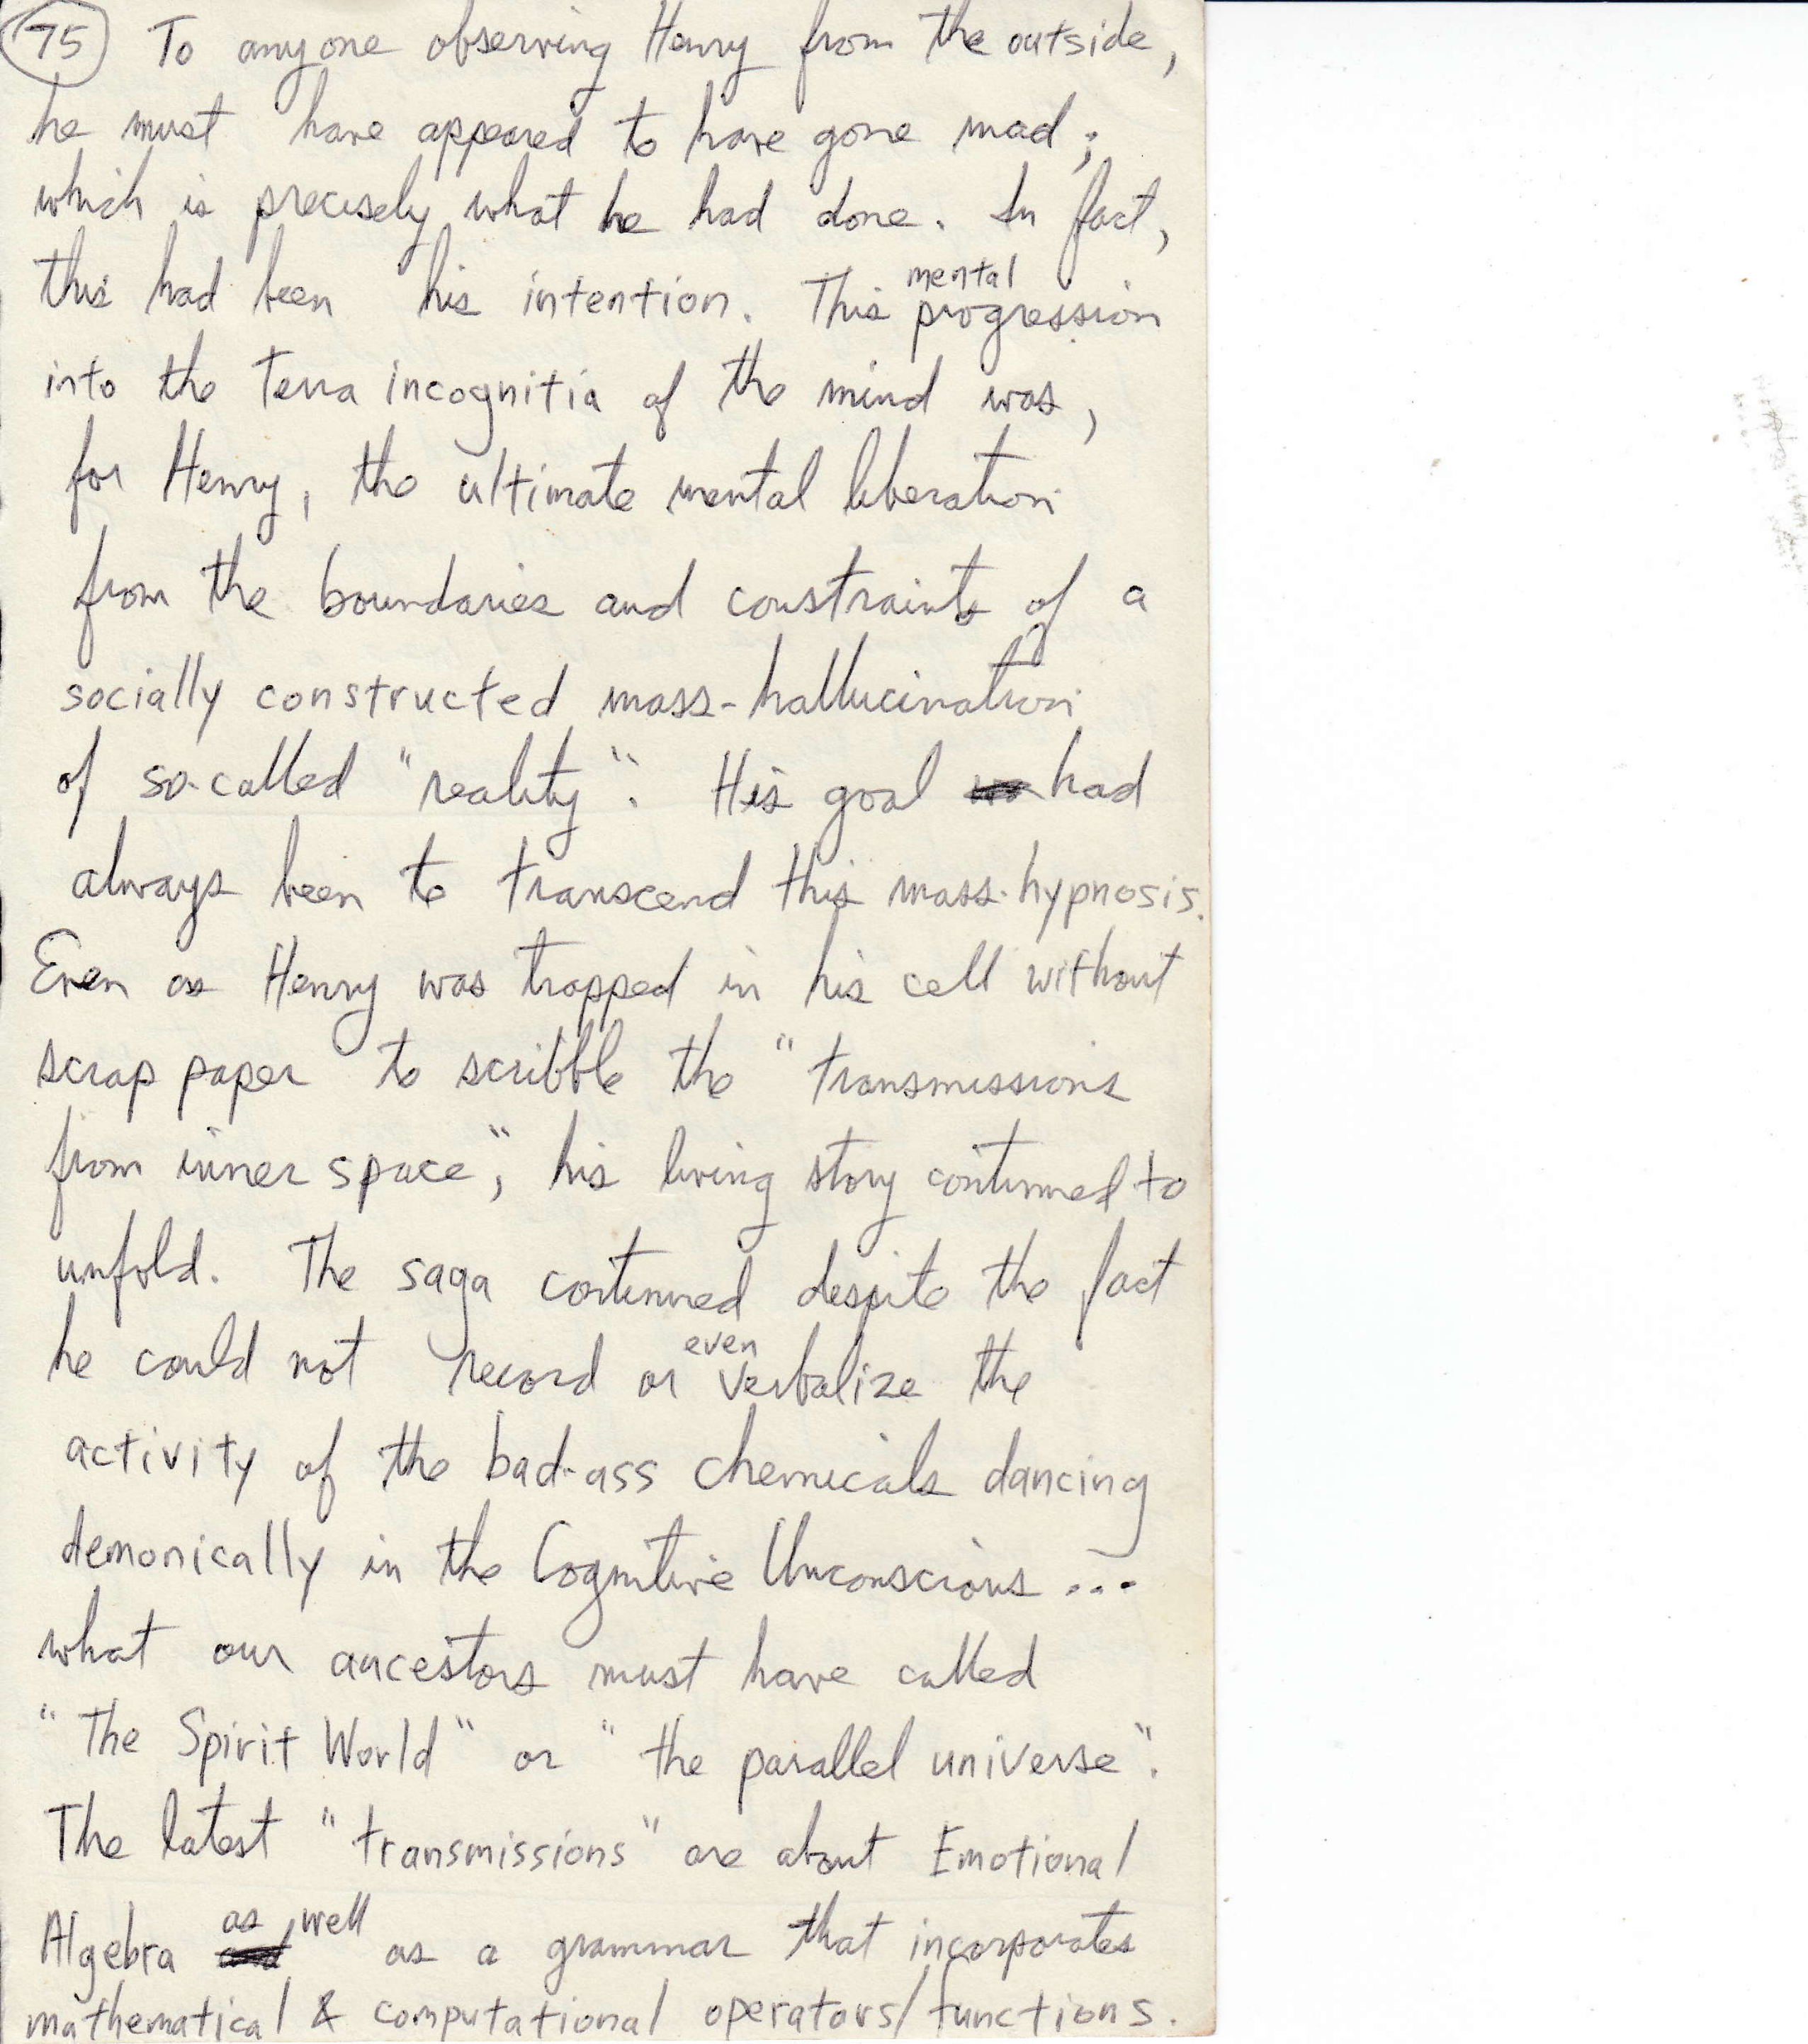 75 To anyone observing Henry from the outside,
he must have appeared to have gone mad;
which is precisely what he had done. In fact,
this had been his intention. This mental progression
into the Terra incognitia of the mind was,
for Henry, the ultimate mental liberation
from the boundaries and constraints of a
socially constructed mass-hallucination
of so-called "reality". His goal had
always been to transcend this mass-hypnosis.
Even as Henry was trapped in his cell without
scrap paper to scribble the "transmissions
from inner space", his living story continued to
unfold. The saga continued despite the fact
he could not record or even verbalize the
activity of the bad-ass chemicals dancing
demonically in the Cognitive Unconscious...
what our ancestors must have called
"The Spirit World" or "the parallel universe".
The latest "transmissions" are about Emotional
Algebra as well as a grammar that incorporates
mathematical & computational operators/functions.